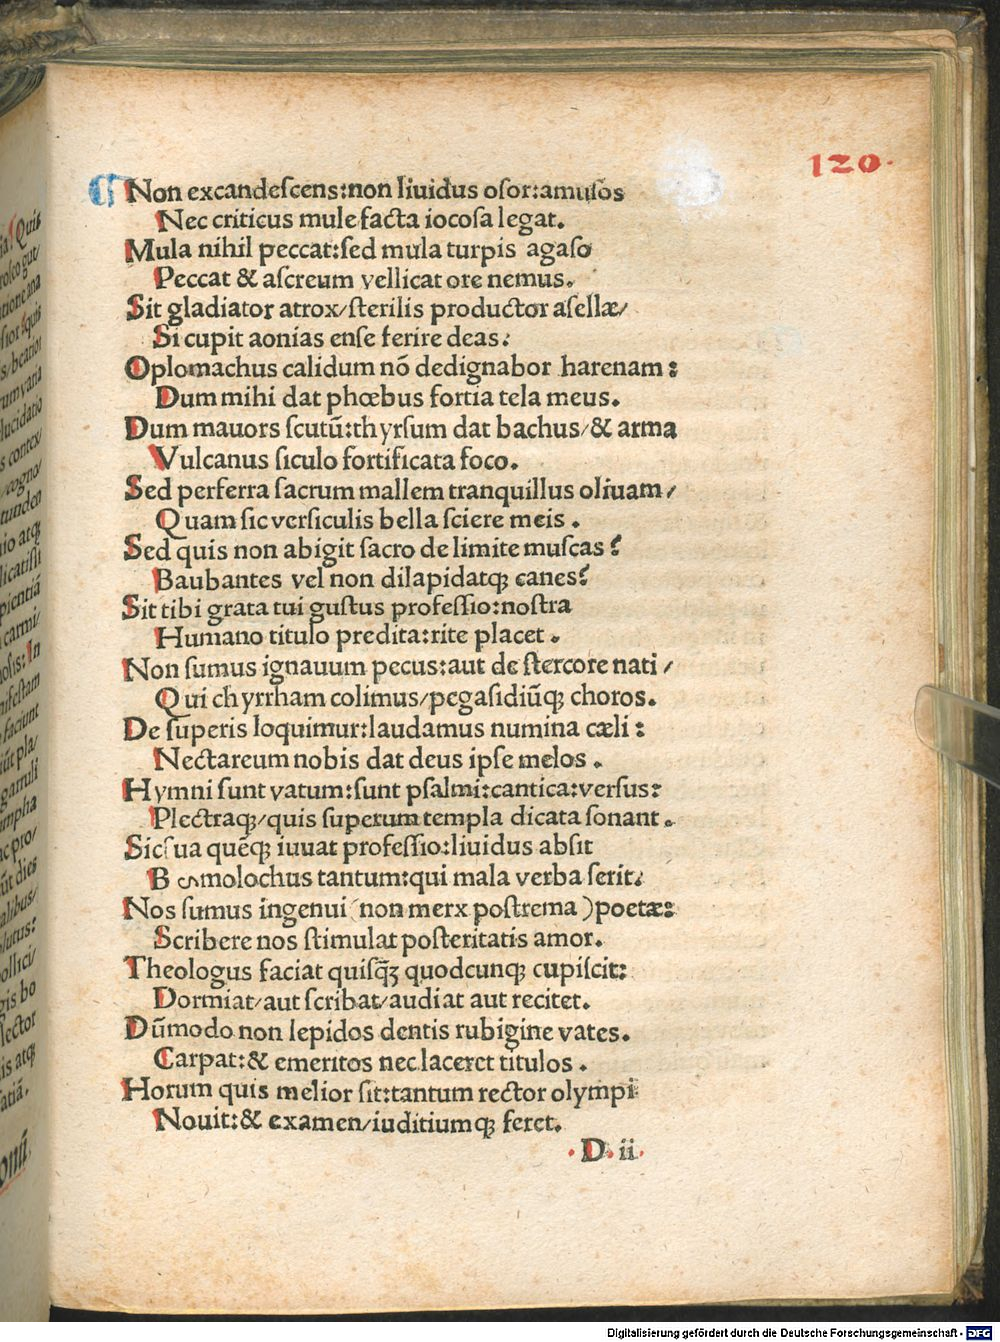 120.
Non excandescens:non liuidus osor:amusos
Nec criticus mule facta iocosa legat.
Mula nihil peccat:sed mula turpis agaso
Peccat & ascreum vellicat ore nemus.
Sit gladiator atrox/sterilis productor asellæ/
Si cupit aonias ense ferire deas:
Oplomachus calidum nõ dedignabor harenam:
Dum mihi dat phœbus fortia tela meus.
Dum mauors scutũ:thyrsum dat bachus/& arma
Vulcanus siculo fortificata foco.
Sed perferra sacrum mallem tranquillus oliuam/
Quam sic versiculis bella sciere meis.
Sed quis non abigit sacro de limite muscas?
Baubantes vel non dilapidatqꝫ canes?
Sit tibi grata tui gustus professio:nostra
Humano titulo predita:rite placet.
Non sumus ignauum pecus:aut de stercore nati/
Qui chyrrham colimus/pegasidiũqꝫ choros.
De superis loquimur:laudamus numina cæli:
Nectareum nobis dat deus ipse melos.
Hymni sunt vatum:sunt psalmi:cantica:versus:
Plectraqꝫ/quis superum templa dicata sonant.
Sic sua quẽqꝫ iuuat professio:liuidus absit
B molochus tantum:qui mala verba serit:
Nos sumus ingenui (non merx postrema) poetæ:
Scribere nos stimulat posteritatis amor.
Theologus faciat quisq̃ꝫ quodcunqꝫ cupiscit:
Dormiat/aut scribat/audiat aut recitet.
Dũmodo non lepidos dentis rubigine vates.
Carpat:& emeritos nec laceret titulos.
Horum quis melior sit:tantum rector olympi
Nouit:& examen/iuditiumqꝫ feret.
.D. ii.
Digitalisierung gefördert durch die Deutsche Forschungsgemeinschaft - DFG